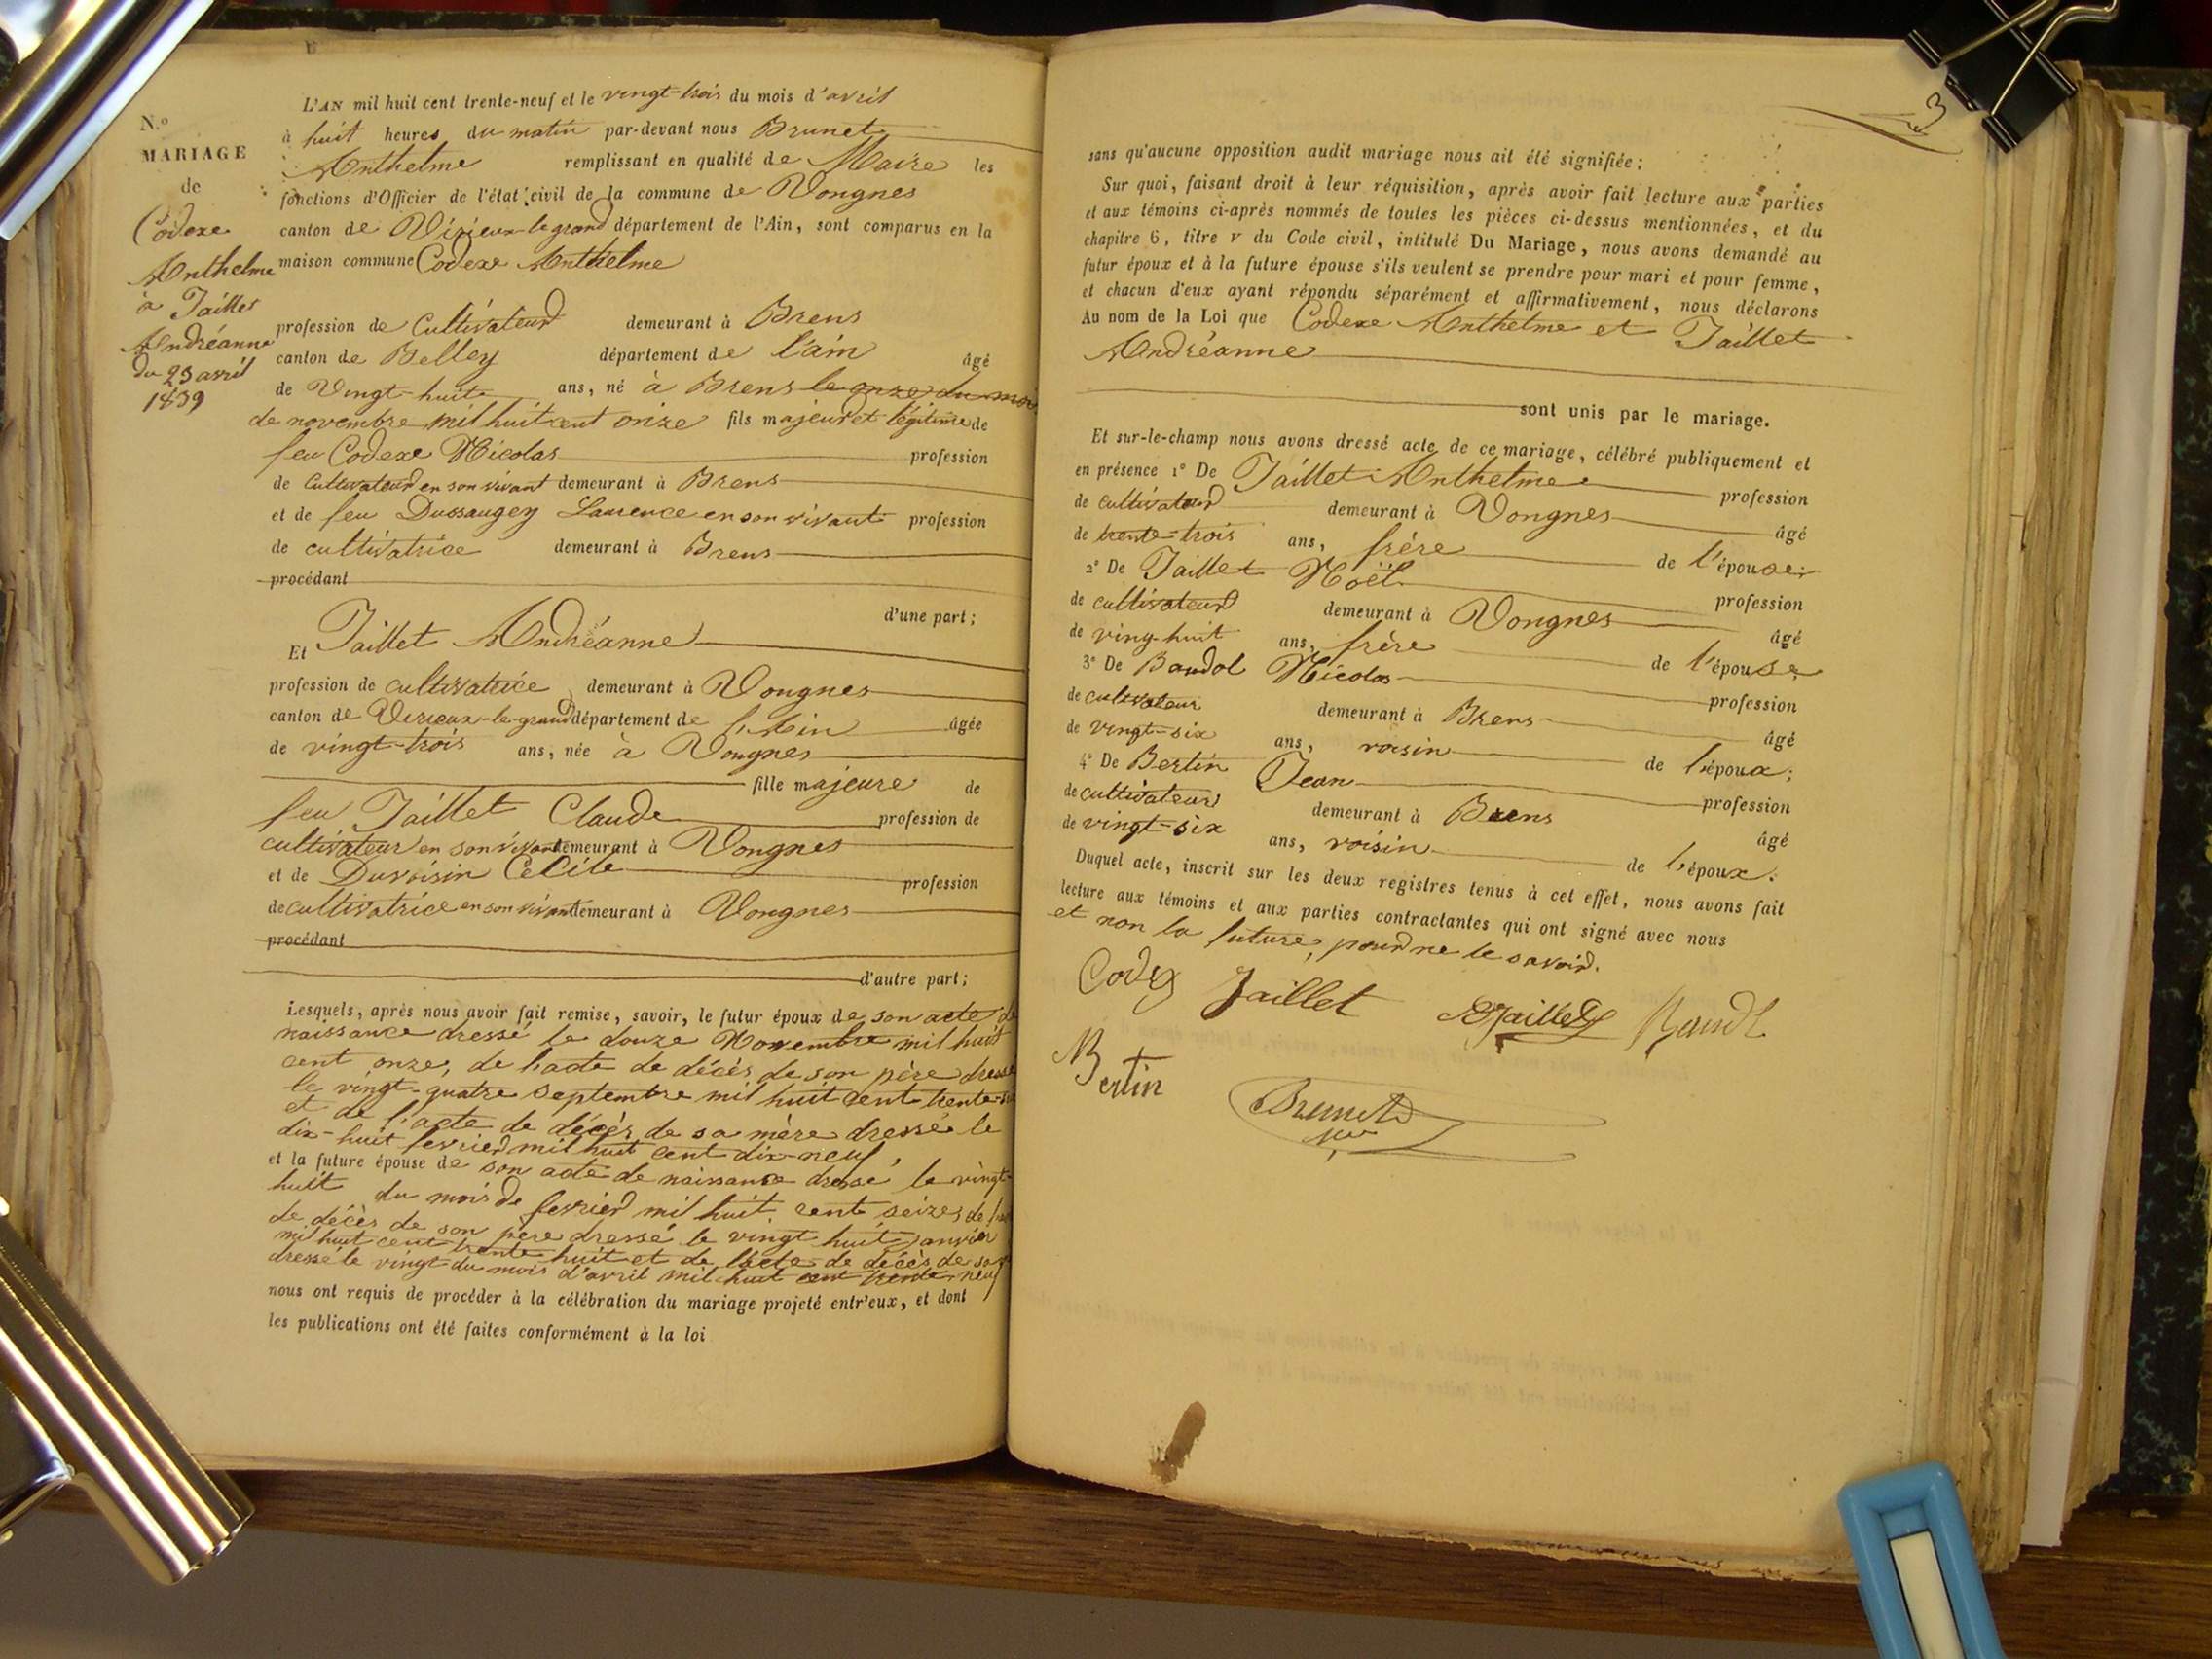 N.o
MARIAGE
de
Codexe
Anthelme
à Taillet
Andréanne
du 23 avril
1839
L'AN mil huit cent trente-neuf et le vingt-trois du mois d'avril
à huit heures du matin par-devant nous Brunet
Anthelme remplissant en qualité de Maire les
fonctions d'Officier de l'état civil de la commune de Vongnes
canton de Virieux-le-grand département de l'Ain, sont comparus en la
maison commune Codexe Anthelme
profession de Cultivateur demeurant à Brens
canton de Belley département de l'ain âgé
de Vingt-huit ans, né à Brens le onze du mois
de novembre mil huit cent onze fils majeur et légitime de
feu Codexe Nicolas profession
de Cultivateur en son vivant demeurant à Brens
et de feu Dussaugey Laurence en son vivant profession
de cultivatrice demeurant à Brens
procédant
d'une part;
Et Taillet Andréanne
profession de cultivatrice demeurant à Vongnes
canton de Virieux-le-grand département de l'Ain âgée
de vingt-trois ans, née à Vongnes
fille majeure de
feu Taillet Claude profession de
cultivateur en son vivant demeurant à Vongnes
et de Duvoisin Cécile profession
de cultivatrice en son vivant demeurant à Vongnes
procédant
d'autre part;
Lesquels, après nous avoir fait remise, savoir, le futur époux de son acte de
naissance dressé le douze Novembre mil huit
cent onze, de l'acte de décès de son père dressé
le vingt-quatre septembre mil huit cent trente
et de l'acte de décès de sa mère dressé le
dix-huit fevrier mil huit cent dix-neuf,
et la future épouse de son acte de naissance dressé le vingt-
huit du mois de fevrier mil huit cent seize, de
de décès de son père dressé le vingt huit janvier
mil huit cent trente huit et de l'acte de décès de sa
dressé le vingt du mois d'avril mil huit cent trente-neuf
nous ont requis de procéder à la célébration du mariage projeté entr'eux, et dont
les publications ont été faites conformément à la loi
3
sans qu'aucune opposition audit mariage nous ait été signifiée;
Sur quoi, faisant droit à leur réquisition, après avoir fait lecture aux parties
et aux témoins ci-après nommés de toutes les pièces ci-dessus mentionnées, et du
chapitre 6, titre v du Code civil, intitulé Du Mariage, nous avons demandé au
futur époux et à la future épouse s'ils veulent se prendre pour mari et pour femme,
et chacun d'eux ayant répondu séparément et affirmativement, nous déclarons
Au nom de la Loi que Codexe Anthelme et Taillet
Andréanne
sont unis par le mariage.
Et sur-le-champ nous avons dressé acte de ce mariage, célébré publiquement et
en présence 1° De Taillet Anthelme profession
de cultivateur demeurant à Vongnes âgé
de trente-trois ans, frère de l'épouse;
2° De Taillet Noël profession
de cultivateur demeurant à Vongnes âgé
de ving-huit ans, frère de l'épouse;
3° De Baudol Nicolas profession
de cultivateur demeurant à Brens âgé
de vingt-six ans, voisin de l'époux;
4° De Bertin Jean profession
de cultivateur demeurant à Brens âgé
de vingt-six ans, voisin de l'époux.
Duquel acte, inscrit sur les deux registres tenus à cet effet, nous avons fait
lecture aux témoins et aux parties contractantes qui ont signé avec nous
et non la future, pour ne le savoir.
Codex Jaillet Jaillet
Bertin
Brunet